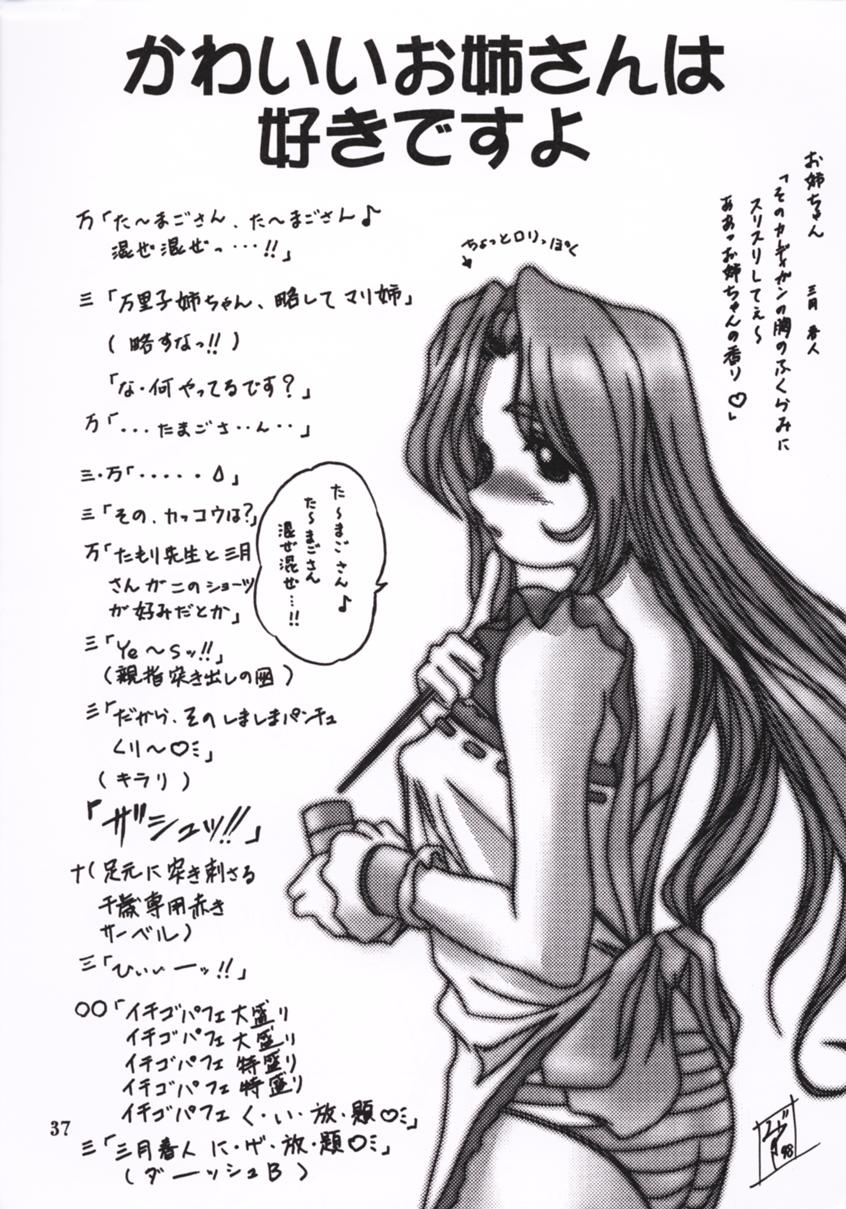 かわいいお姉さんは
好きですよ
お姉ちゃん 三月春人
「そのカゲキガンの胸のふくらみに
スリスリしてぇ〜
ああっお姉ちゃんの香り♡」
ちょっとロリっぽく
万「た〜まごさん、た〜まごさん♪
混ぜ混ぜっ・・・!!」
三「万里子姉ちゃん、略してマリ姉」
(略すなっ!!)
「な・何やってるです?」
万「・・・たまごさ・・ん・・」
三・万「・・・・・」
三「その、カッコウは?」
万「たもり先生と三月
さんがこのショーツ
が好みだとか」
三「Ye〜Sッ!!」
(親指突き出しの図)
三「だから、そのしましまパンチュ
くり〜♡」
(キラリ)
「ザシュッ!!」
ナ(足元に突き刺さる
千歳専用赤き
サーベル)
三「ひぃぃーッ!!」
○○「イチゴパフェ大盛り
イチゴパフェ大盛り
イチゴパフェ特盛り
イチゴパフェ特盛り
イチゴパフェく・い・放・題♡」
三「三月春人に・げ・放・題♡」
(ダーッシュB)
た〜まごさん♪
た〜まごさん
混ぜ混ぜ…!!
37
98